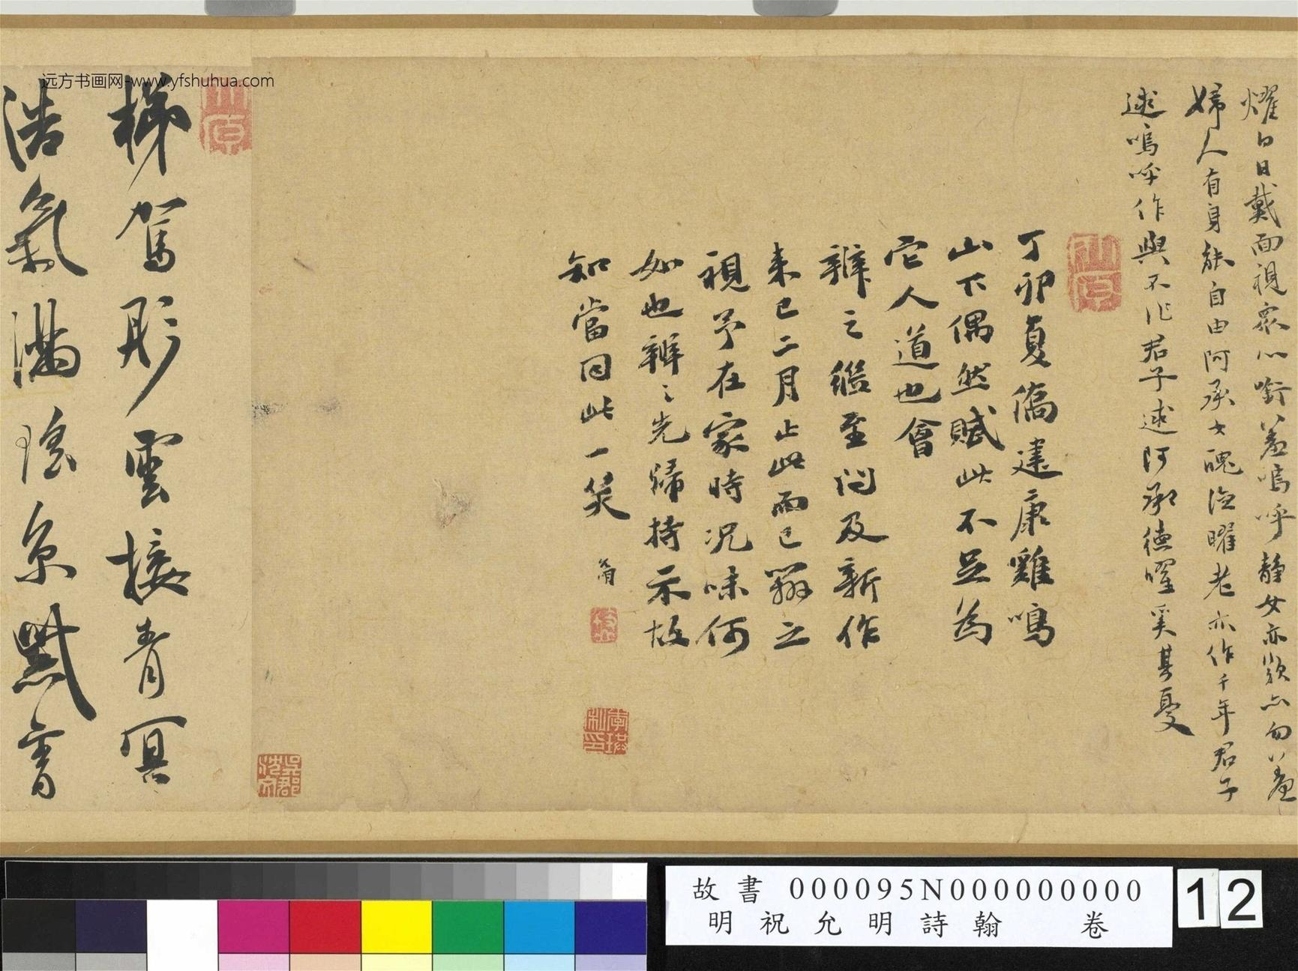 远方书画网-www.yfshuhua.com
燿白日戴面視眾心啣羞嗚呼靜女亦嫁亦勿羞
婦人有身能自由阿承女醜德曜老亦作千年君子
逑嗚呼作與不作君子逑阿承德曜奚其憂
丁卯夏僑建康雞鳴
山下偶然賦此不足為
它人道也會
辨之繼至問及新作
來已二月止此而已辨之
視予在家時況味何
如也辨之先歸持示故
知當同此一笑
梯駕彤雲接青冥
浩氣滿
故書 000095N000000000
明祝允明詩翰 卷
12